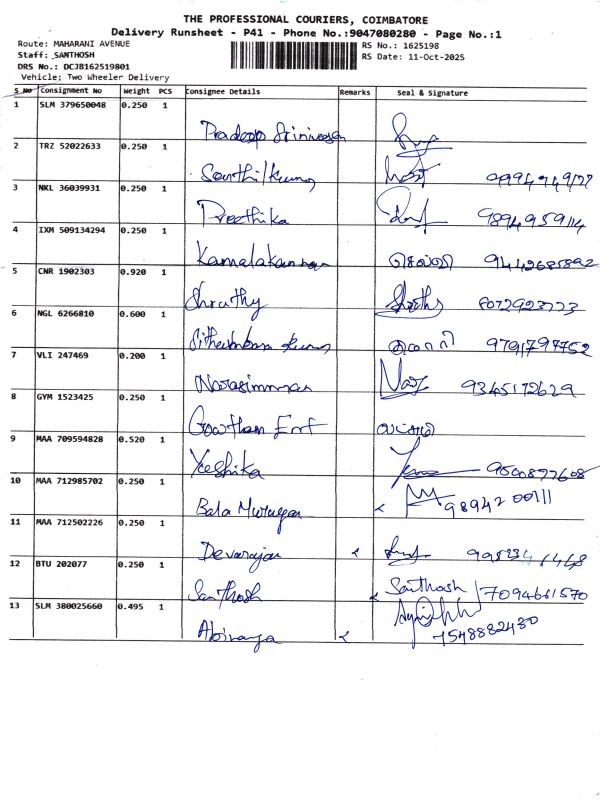 THE PROFESSIONAL COURIERS, COIMBATORE
Delivery Runsheet - P41 - Phone No.:9047080280 - Page No.:1
Route: MAHARANI AVENUE
Staff: SANTHOSH
DRS No.: DCJB162519801
Vehicle: Two Wheeler Delivery
RS No.: 1625198
RS Date: 11-Oct-2025
S No Consignment No Weight PCS Consignee Details Remarks Seal & Signature
1 SLM 379650048 0.250 1 Pradeep Srinivasan
2 TRZ 52022633 0.250 1 Senthilkumar
3 NKL 36039931 0.250 1 Preethika 9894959114
4 IXM 509134294 0.250 1 Kamalakannan 9442685892
5 CNR 1902303 0.920 1 Shruthy
6 NGL 6266810 0.600 1 9791797752
7 VLI 247469 0.200 1 Narasimman 9345172629
8 GYM 1523425 0.250 1 Gowtham Ent
9 MAA 709594828 0.520 1 Yeshika 9500877608
10 MAA 712985702 0.250 1 Bala Murugan 98942 00111
11 MAA 712502226 0.250 1 Devarajan
12 BTU 202077 0.250 1 Santhosh Santhosh 7094661570
13 SLM 380025660 0.495 1 Abinaya 7548882430